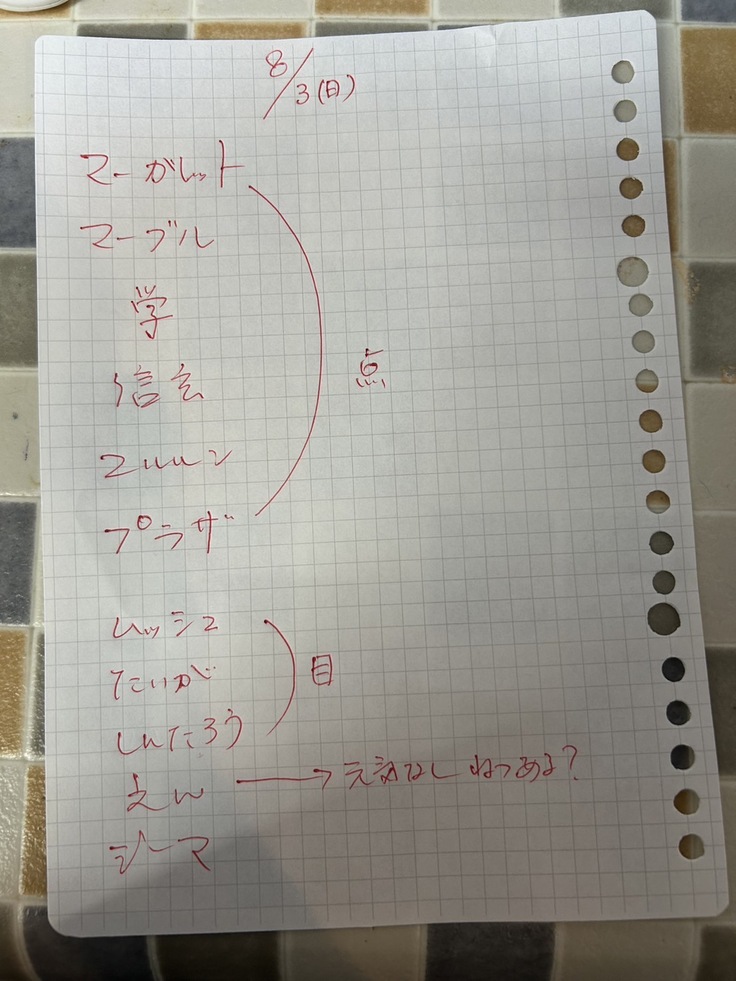 8/3(日)
マーガレット
マーブル
学
信玄
点
プラザ
ルッシュ
たいが
目
しんたろう
えん → 元気なし ねつある?
ジーマ